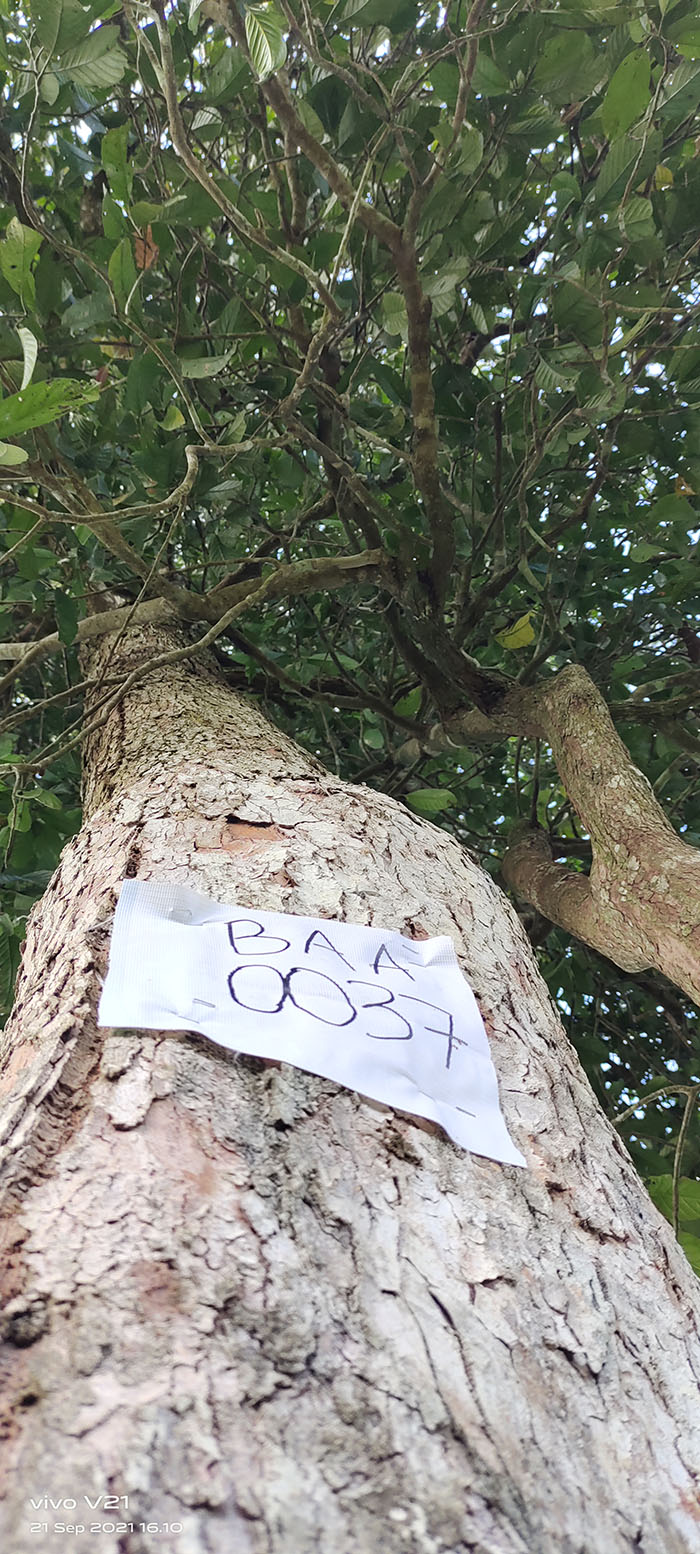 BAA
0037
vivo V21
21 Sep 2021 16.10